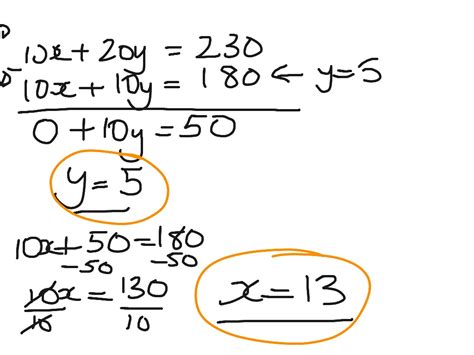 10x + 20y = 230
- 10x + 10y = 180 ← y=5
0 + 10y = 50
y = 5
10x + 50 = 180
-50 -50
10x = 130
10 10
x = 13